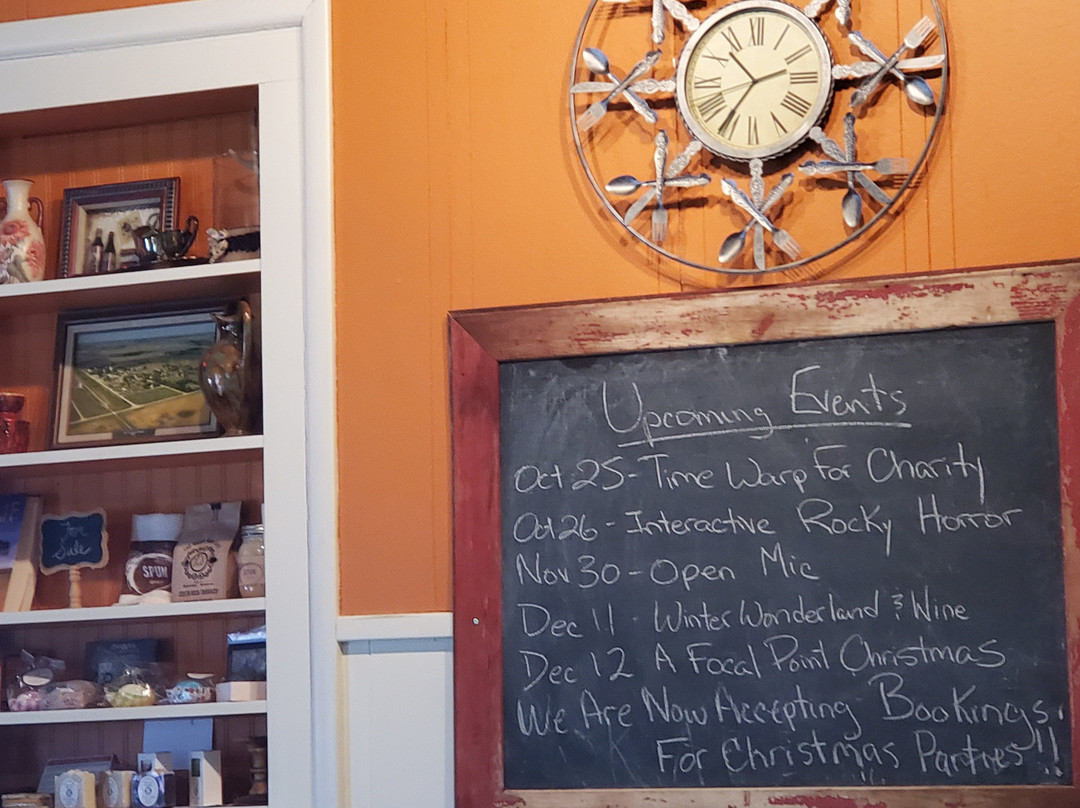 XII
I
II
III
IIII
V
VI
VII
VIII
IX
X
XI
Upcoming Events
Oct 25 - Time Warp For Charity
Oct 26 - Interactive Rocky Horror
Nov 30 - Open Mic
Dec 11 - Winter Wonderland & Wine
Dec 12 A Focal Point Christmas
We Are Now Accepting Bookings
For Christmas Parties!!
For
Sale
SPUN